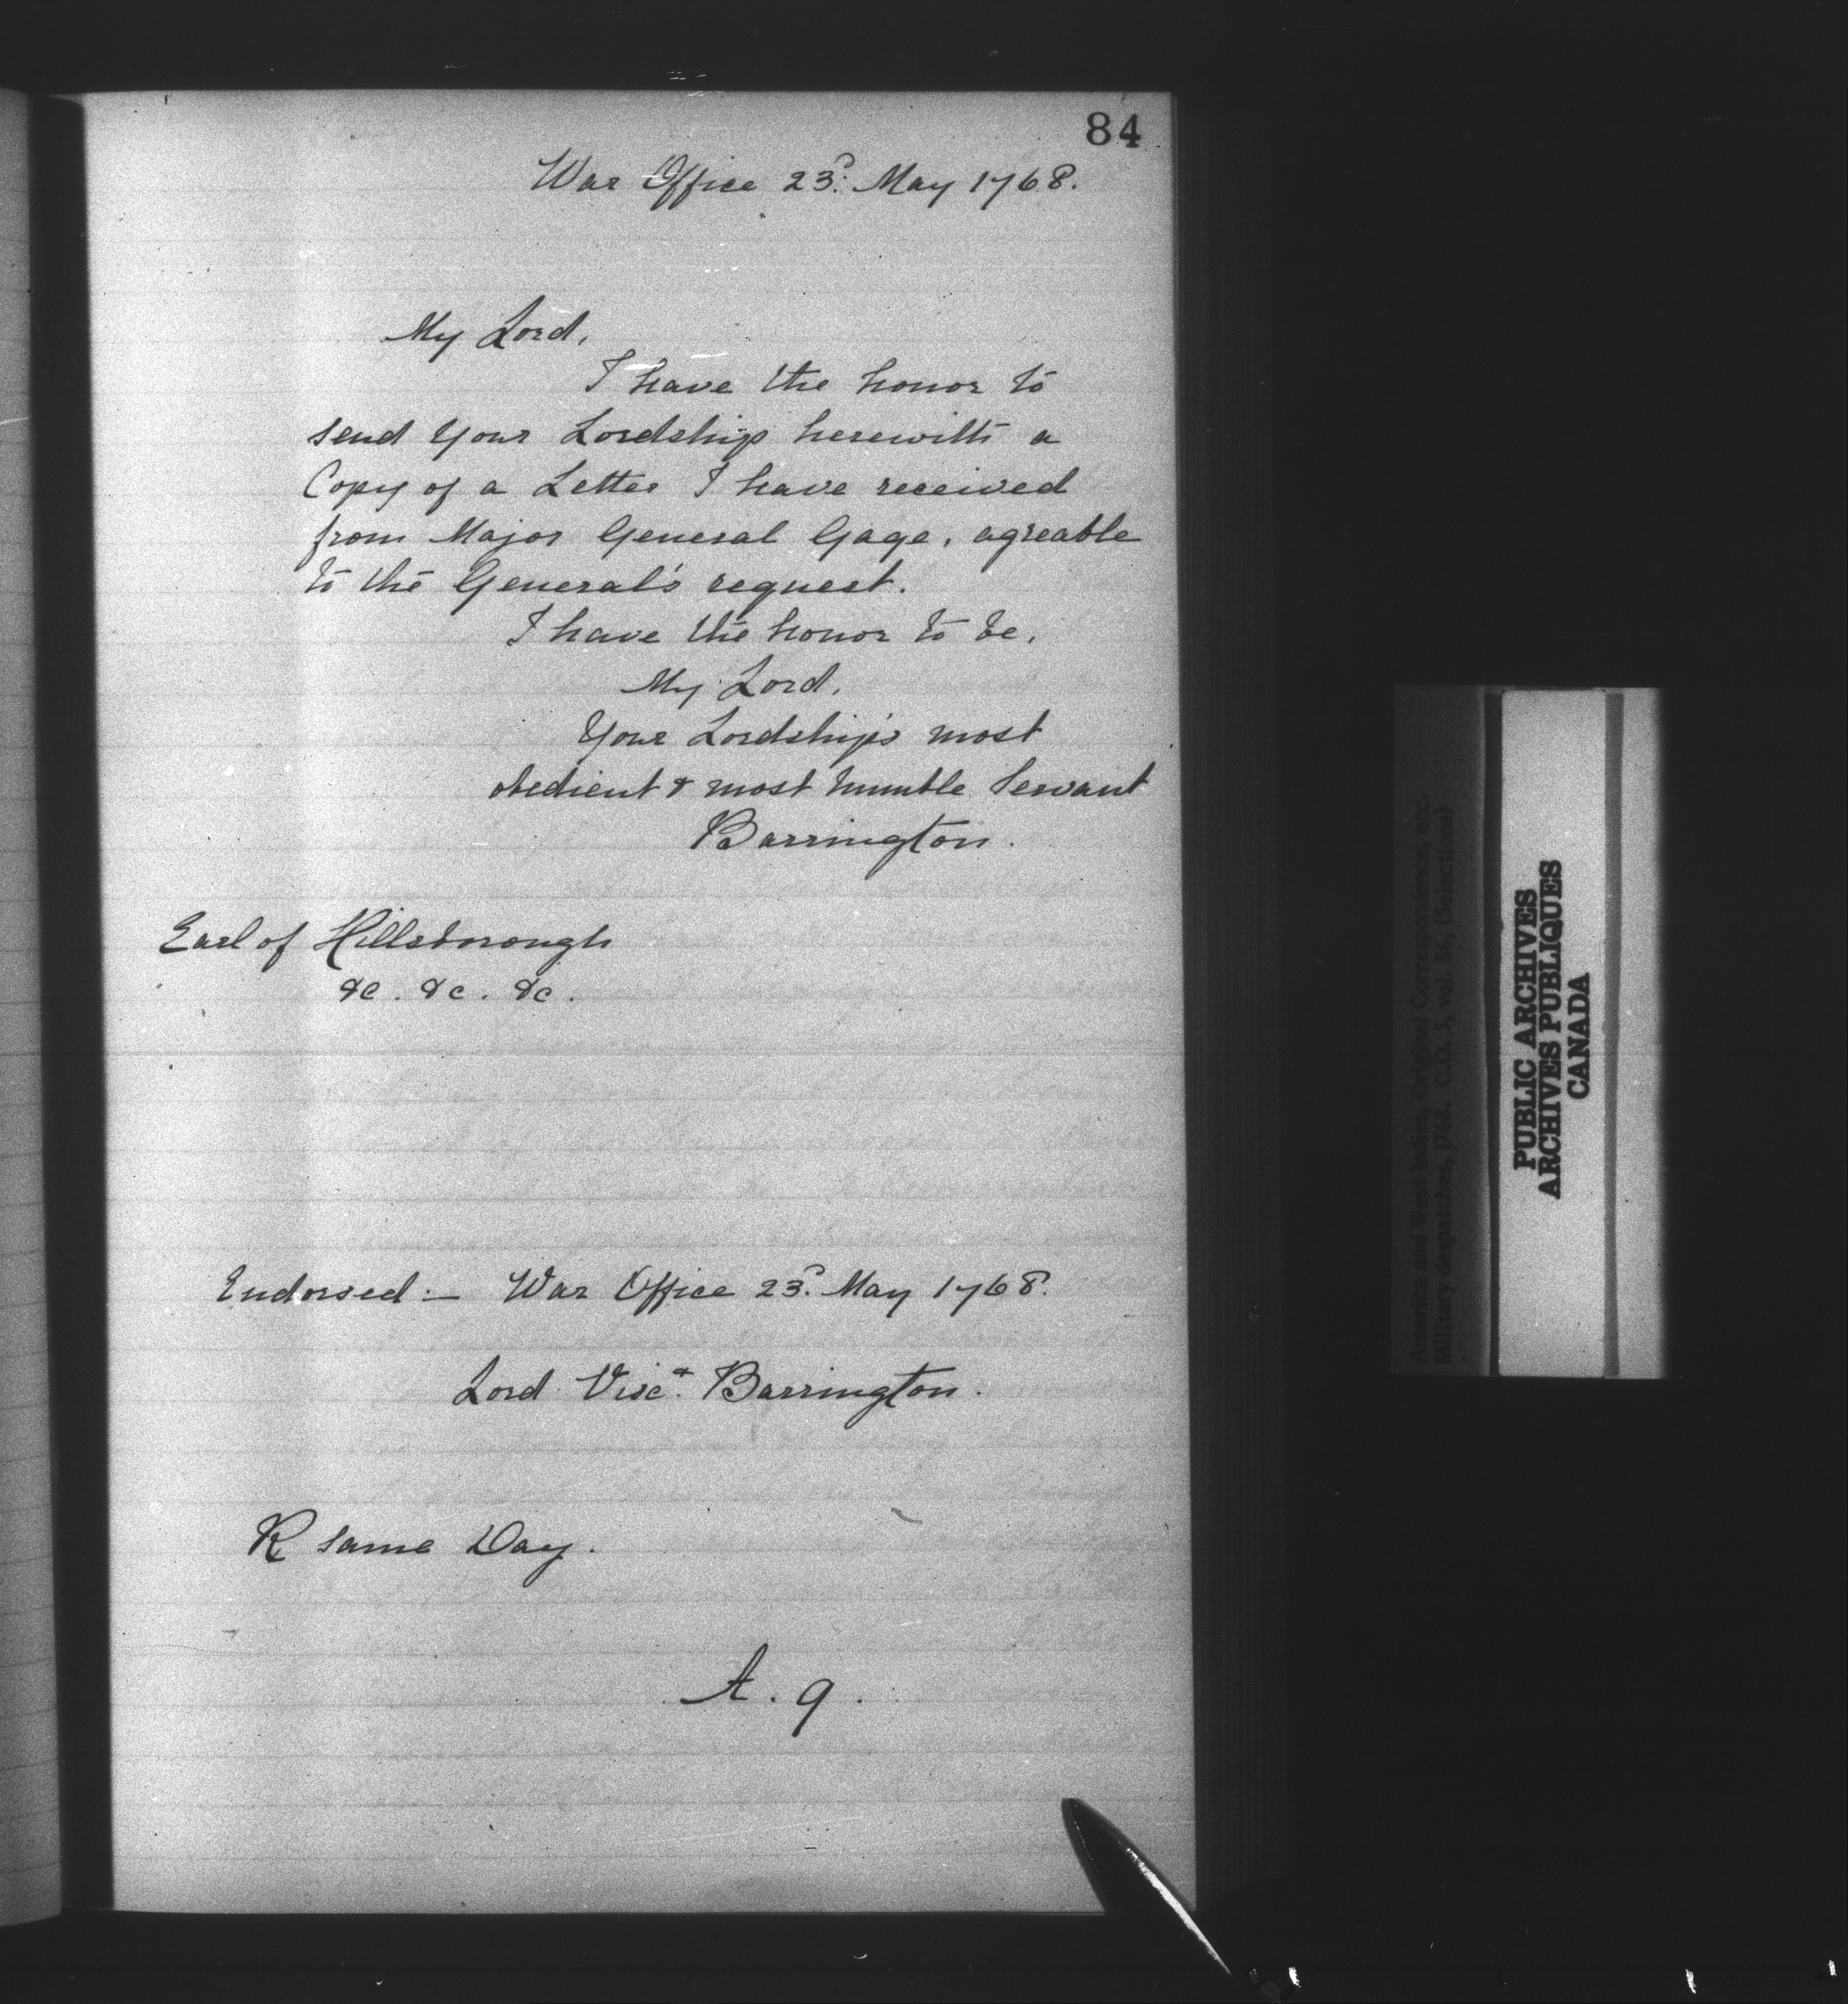 84
War Office 23.d May 1768.
My Lord,
I have the honor to
send Your Lordship herewith a
Copy of a Letter I have received
from Major General Gage, agreable
to the General's request.
I have the honor to be,
My Lord,
Your Lordship's most
obedient & most humble Servant
Barrington.
Earl of Hillsborough
&c. &c. &c.
Endorsed:— War Office 23.d May 1768.
Lord Visc.t Barrington.
R same Day.
A. 9.
America and West Indies, Original Correspondence, etc.
Military despatches, 1768. C.O. 5, vol. 86, (Selections)
PUBLIC ARCHIVES
ARCHIVES PUBLIQUES
CANADA